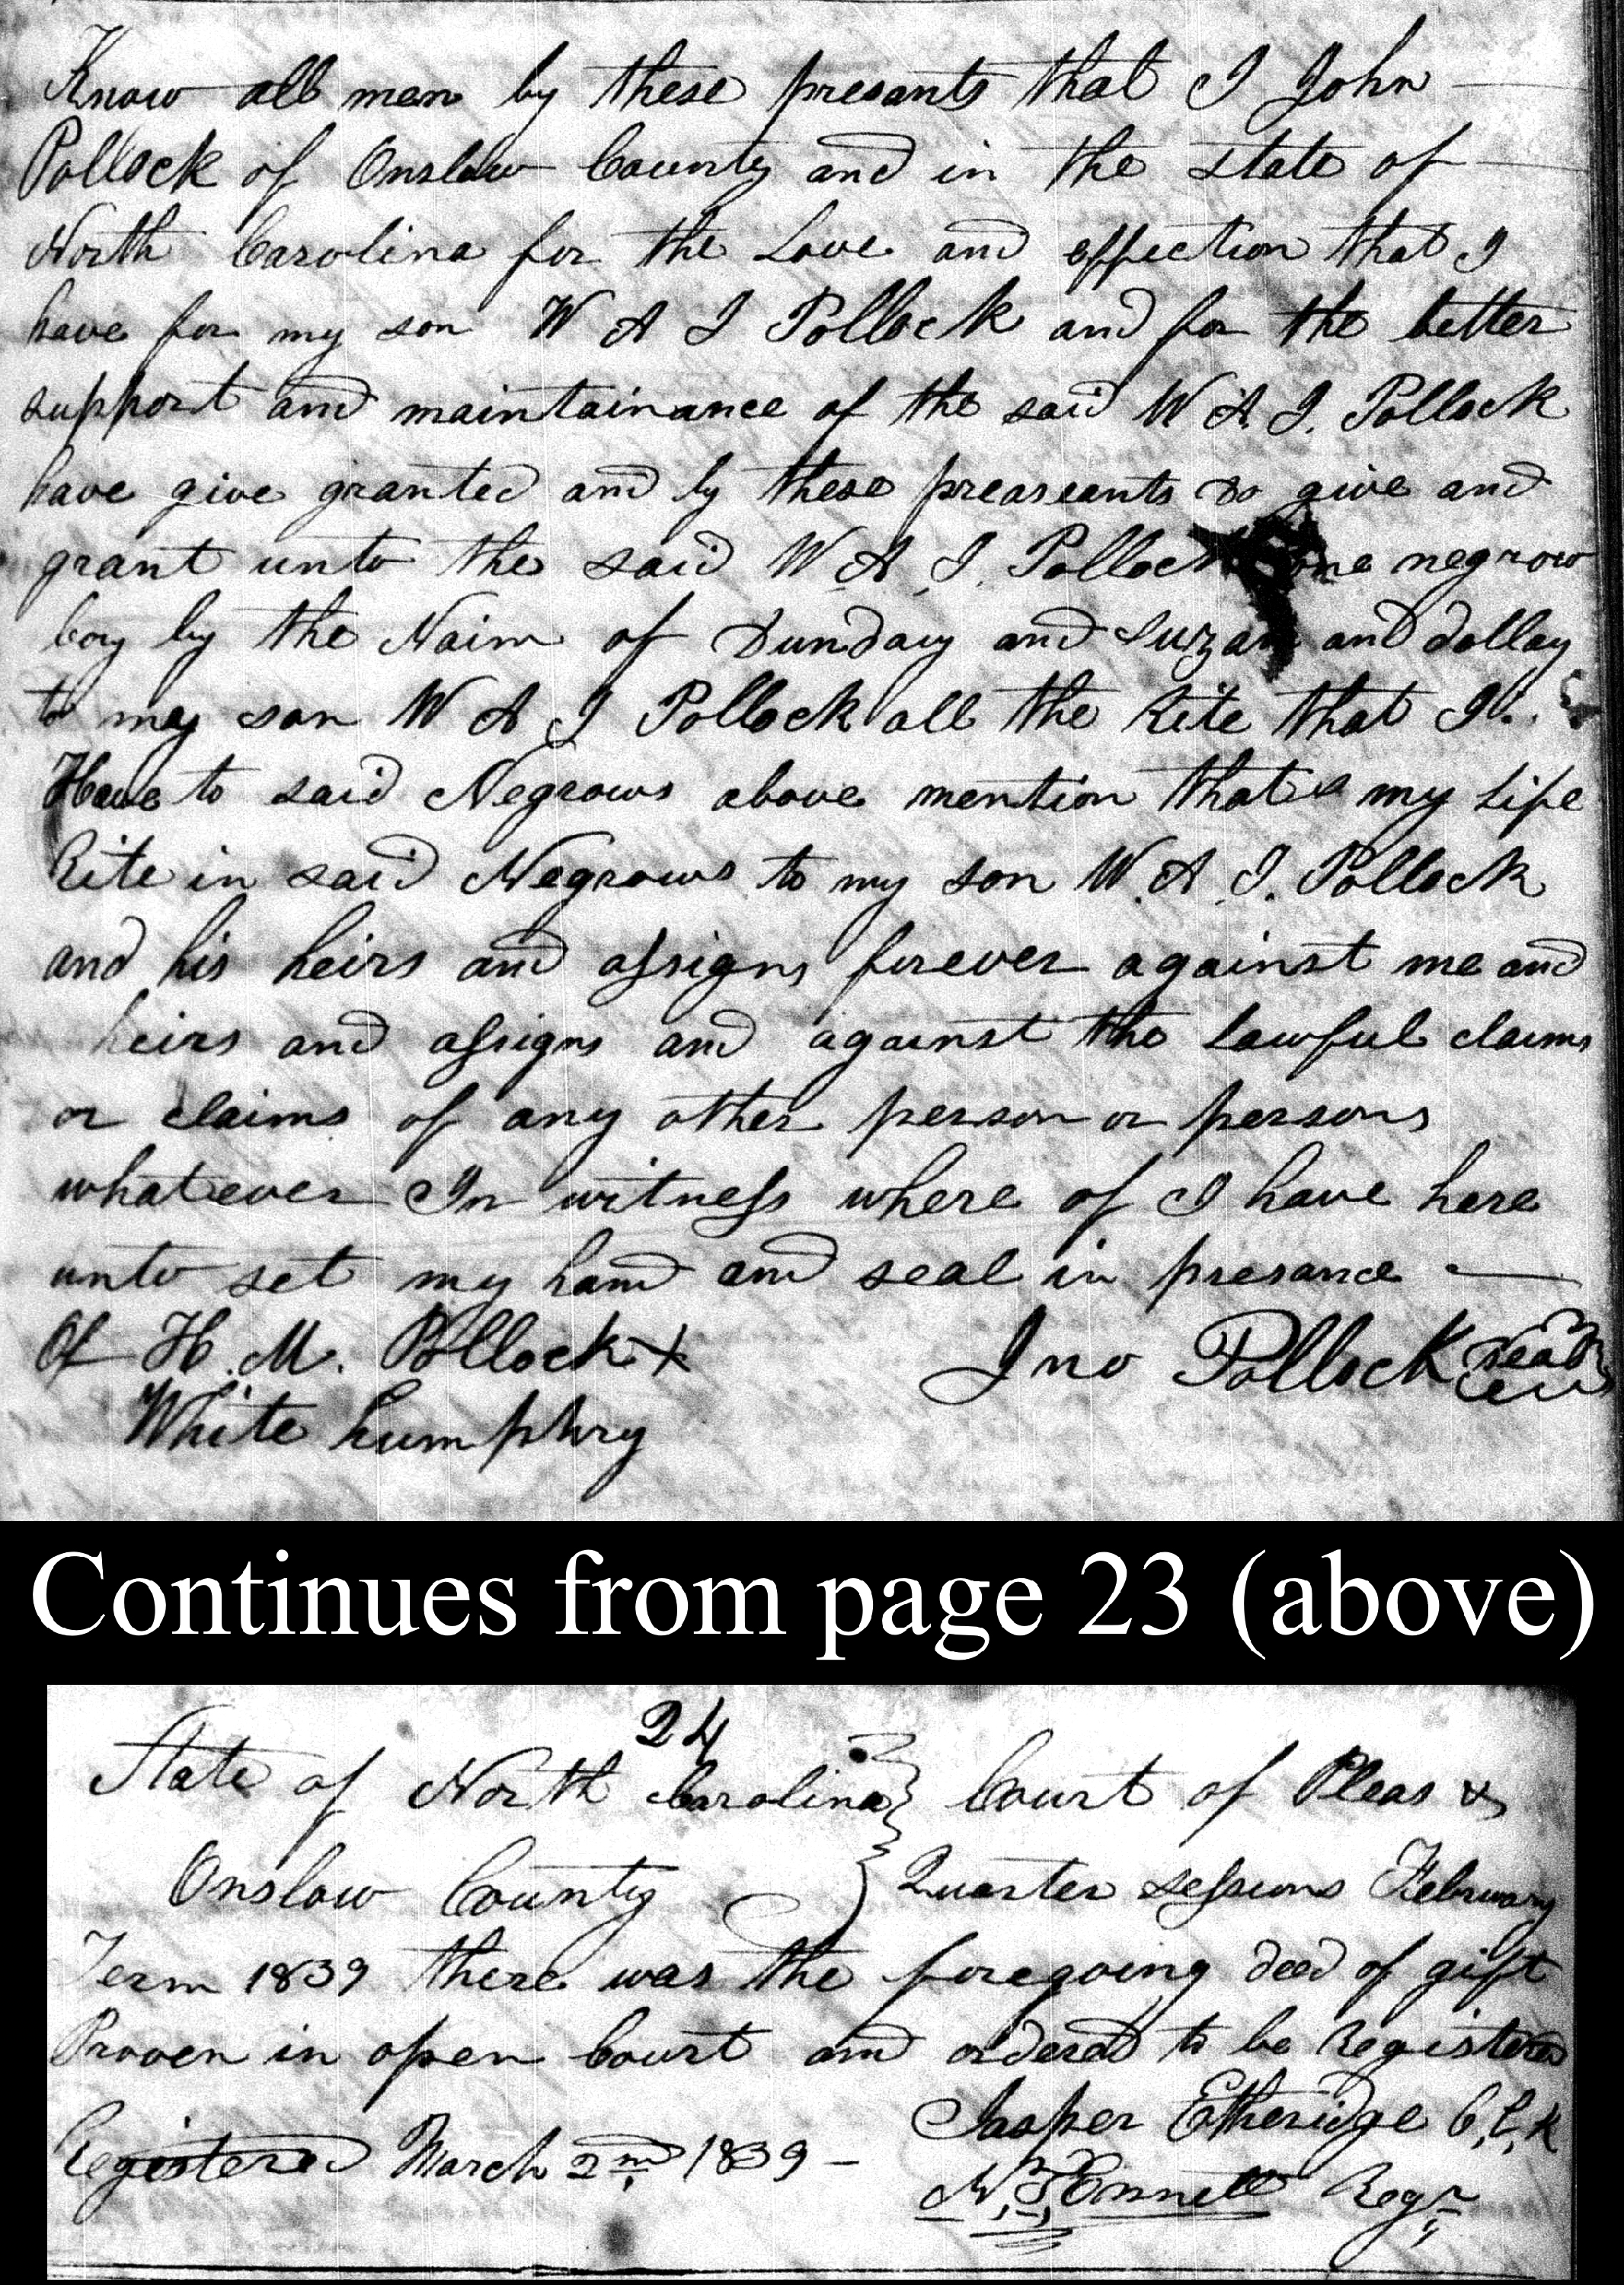 Know all men by these presants that I John
Pollock of Onslow County and in the state of
North Carolina for the Love and effection that I
have for my son W A J Pollock and for the better
support and maintainance of the said W A. J. Pollock
have give granted and by these preaseants do give and
grant unto the said W. A. J. Pollock one negrow
boy by the Naim of Dunday and Suzan and dollay
to my son W A J Pollock all the Rite that I
Have to said Negrows above mention that my Life
Rite in said Negrows to my son W. A. J. Pollock
and his heirs and assigns forever against me and
heirs and assigns and against the Lawful claims
or claims of any other person or persons
whatever In witness where of I have here
unto set my hand and seal in presance
Of H. M. Pollock X Jno Pollock seal
White humphry
Continues from page 23 (above)
24
State of North Carolina Court of Pleas &
Onslow County Quarter sessions February
Term 1839 there was the foregoing deed of gift
Proven in open Court and ordered to be Registered
Jasper Etheridge C,C,K
Registered March 2nd 1839 -
Ennett Regr